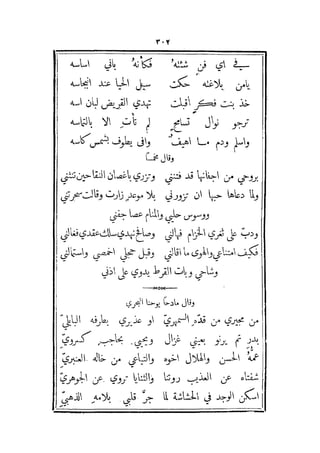 ٣٠٢
سيفي اي فن شئته فكأنه باني اساسه
يامن بلاغته حكت سيل الحيا عند انبجاسه
خذ بنت فكر اقبلت تهدي القريض لبان اسه
ترجو نوال تسامح لم تأت الا بالتماسه
واسلم ودم ما اهيف وافى يطوف بشمس كاسه
وقال مخمسًا
بروحي من اجفانها قد فتنني وتزري باغصان النقا حين تنثني
ولما دعاها حبها ان تزورني بلا موعد زارت وقالت سحرتني
ووسوس حليي والمنام عصا جفني
ودب على ثغري الخزام فهالني وصافح نهدي سلك عقدي فغالني
فكيف امتناعي والهوى ما اقالني وقبل حجلي اخمصي واستمالني
وشاحي وبات القرط يدوي على اذني
وقال مادحًا يوحنا البحري
من مجيري من قده السمهري او عذيري بطرفه البابلي
بدر تم يرنو بعيني غزال ويحيي بحاجب كسروي
عمه الحسن والهلال اخوه والنجاشي من خاله العنبري
شفتاه عن العذيب روتنا والثنايا تروي عن الجوهري
اسكن الوجد في الحشاشة لما جر قلبي بلامه الذهبي